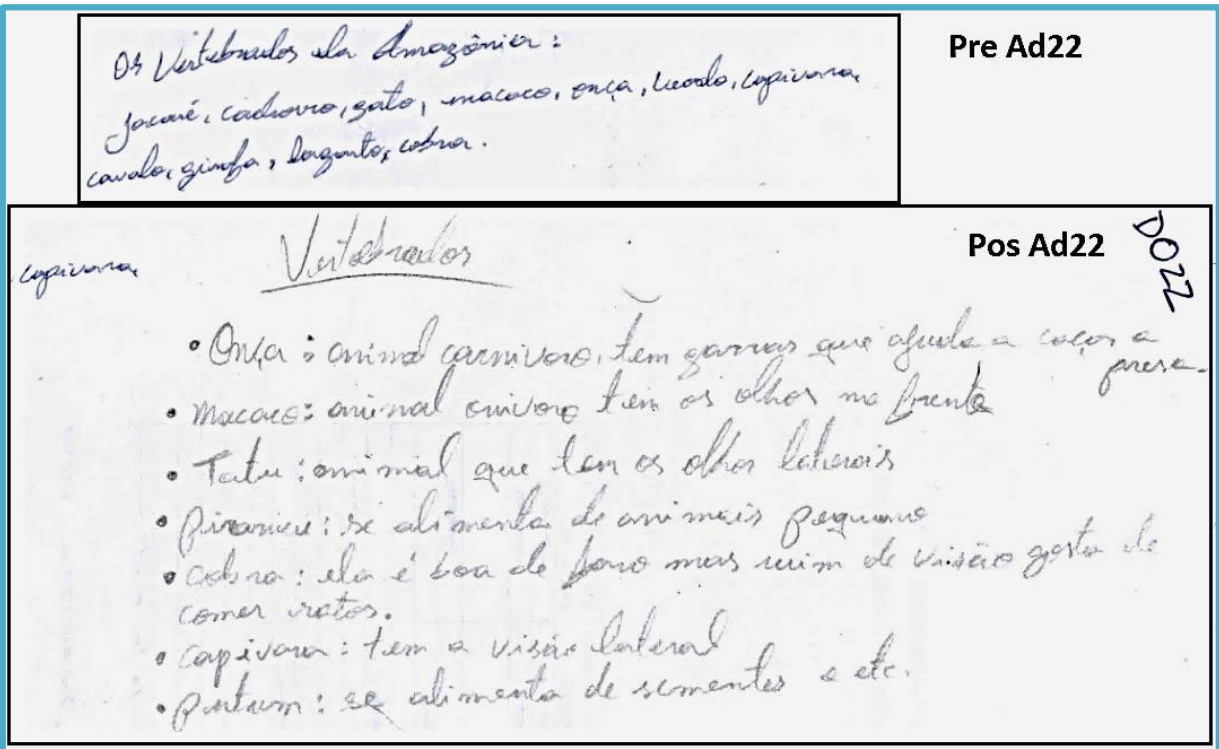 Pre Ad22
Os Vertebrados da Amazônia:
Jacaré, cachorro, gato, macaco, onça, veado, capivara,
cavalo, girafa, lagarto, cobra.
Pos Ad22
DO22
capivara,
Vertebrados
• Onça: animal carnivoro, tem garras que ajuda a caçar a
presa.
• Macaco: animal onivoro tem os olhos na frente
• Tatu: animal que tem os olhos laterais
• se alimenta de animais pequeno
• Cobra: ela é boa de faro mas ruim de visão gosta de
comer ratos.
• Capivara: tem a visão lateral
• se alimenta de sementes e etc.